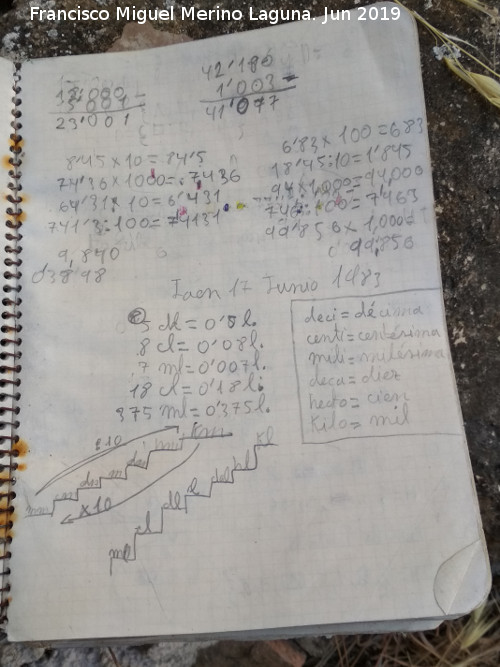 Francisco Miguel Merino Laguna. Jun 2019
42'180
1'003
41'077
23'001
8'45 x 10 = 84'5
6'83 x 100 = 683
74'36 x 1000 =
18'45:10 = 1'845
64'31 x 10 = 6'431
94 x 1,000 = 94,000
741'3:100 = 74131
= 7'463
99'856 x 1,000 =
9,840
99,856
038'98
Jaen 17 Junio 1983
5 dl = 0'5 l.
8 cl = 0'08 l.
7 ml = 0'007 l.
18 cl = 0'18 l.
375 ml = 0'375 l.
deci = décima
centi = centésima
mili = milésima
deca = diez
hecto = cien
Kilo = mil
:10
Km
x10
kl
hl
dal
l
dl
cl
ml